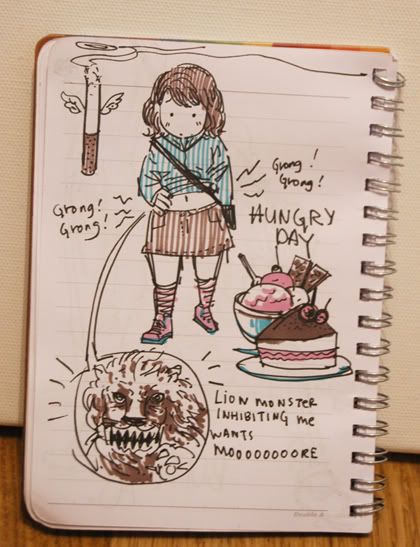 Grong!
Grong!
Grong!
Grong!
HUNGRY
DAY
LION MONSTER
INHIBITING ME
WANTS
MOOOOOOOORE
Double A